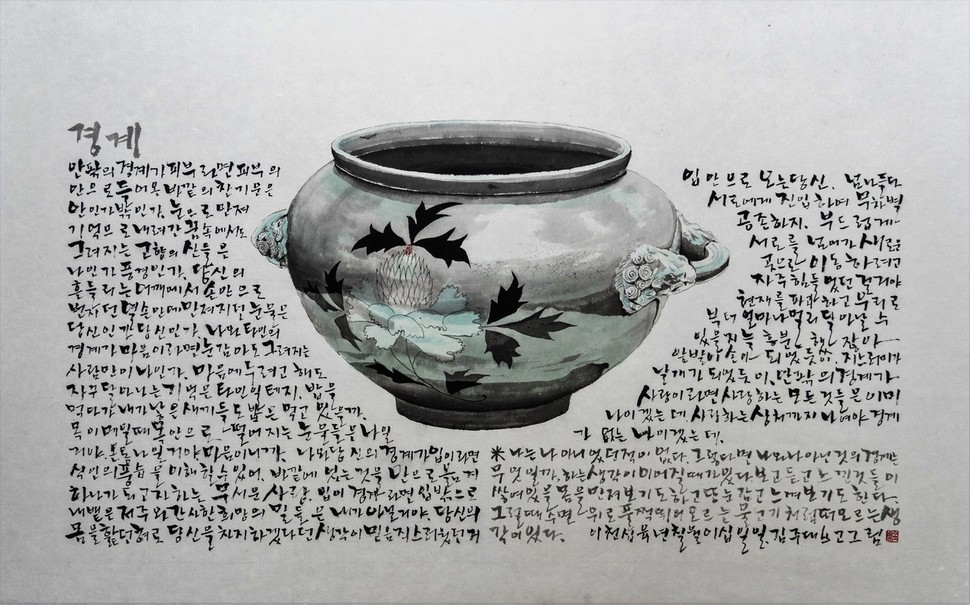 경계
안팎의 경계가 피부라면 피부의
안으로 들어온 바깥의 한기운은
안인가 밖인가. 눈으로 만져
기억으로 내려간 꿈속에서도
그려지는 고향의 산들은
나인가 풍경인가. 당신의
흔들리는 어깨에서 손만으로
번지던 옆손안에 만져지던 눈물은
당신인가. 나와 타인의
경계가 마음이라면 눈감아도 그려지는
사람만이 나인가. 마음에 두려고 해도
자꾸 달아나는 기억은 타인의 테지. 밥을
먹다가 내가 낳은 새끼들도 밥은 먹고 있을까.
목이 메일때 목안으로 떨어지는 눈물들은 나일
거야. 온통 나일거야 마음이니까. 나와 당신의 경계가 입이라면
식인의 풍습을 이해할 수 있어. 바깥에 있는 것을 안으로 품게
하나가 되고자 하는 무서운 사랑. 입이 경계라면 입밖으로
내뱉은 저주와 간사한 희망의 말들은 내가 아닐거야. 당신의
몸을 핥던 혀로 당신을 차지하겠다던 생각이 믿음직스러웠던
입안으로 오는 당신. 넘나들다
서로에게 진입하여 무차별
공존하지. 부드럽게
서로를 넘어가 새로운
곳으로 이동하려고
자주 힘들었던 거야
현재를 파괴하고 부리로
부터 얼마나 멀리 달아날 수
있을지
되었듯
날개가 되었듯이. 안팎의 경계가
사랑이라면 사랑하는 모든 것들은 이미
나이겠는데 사랑하는 상처까지 나여야 경계
가 없는 나이겠는데.
나는 나 아니었던 적이 없다. 그렇다면 나와 나 아닌 것의 경계는
무엇일까. 하는 생각이 이어질때가 있다. 보고 듣고 느낀 것들이
쌓여있을 몸을 만져보기도 하고 또는 잡고 느껴보기도 한다.
그럴때 수면 위로 풀쩍 뛰어오르는 물고기처럼 떠오르는 생
각이 있다. 이천십육년 칠월 이십일일 김주대 쓰고 그림